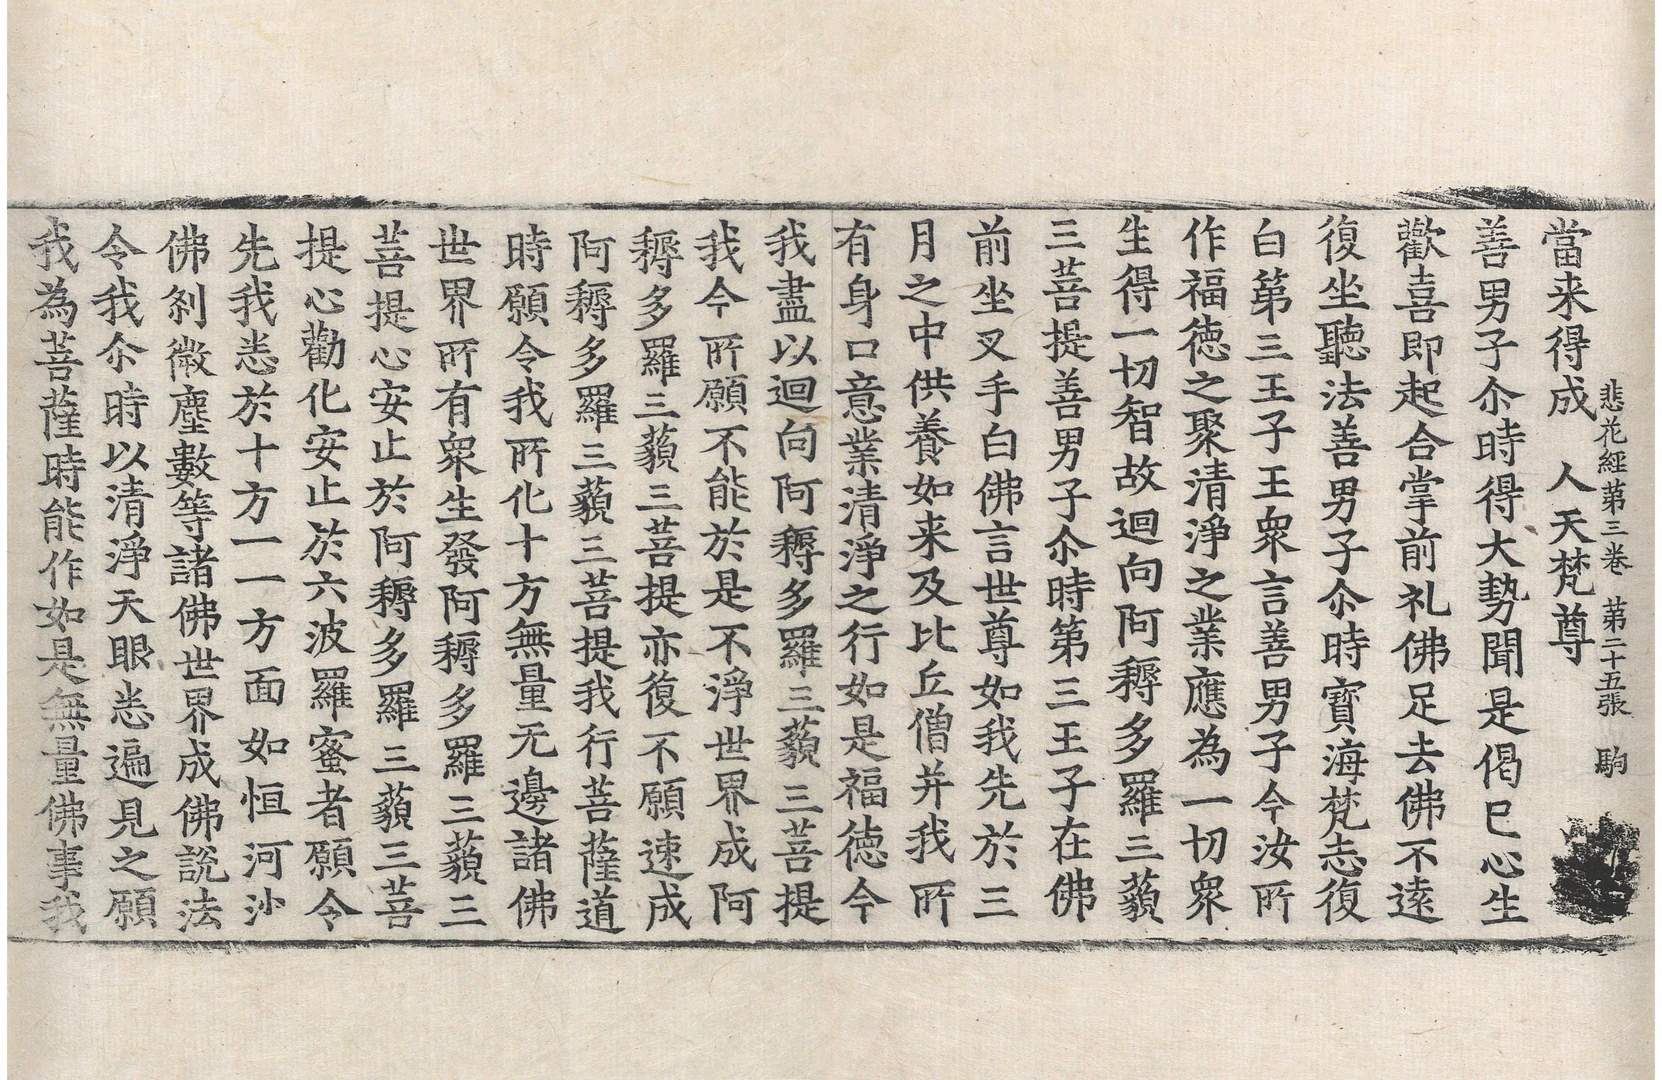 悲花経第三巻 第二十五張 駒
當来得成 人天梵尊
善男子尒時得大勢聞是偈已心生
歡喜即起合掌前礼佛足去佛不遠
復坐聽法善男子尒時寶海梵志復
白第三王子王衆言善男子今汝所
作福徳之聚清淨之業應為一切衆
生得一切智故迴向阿耨多羅三藐
三菩提善男子尒時第三王子在佛
前坐叉手白佛言世尊如我先於三
月之中供養如来及比丘僧并我所
有身口意業清淨之行如是福徳今
我盡以迴向阿耨多羅三藐三菩提
我今所願不能於是不淨世界成阿
耨多羅三藐三菩提亦復不願速成
阿耨多羅三藐三菩提我行菩薩道
時願令我所化十方無量无邊諸佛
世界所有衆生發阿耨多羅三藐三
菩提心安止於阿耨多羅三藐三菩
提心勸化安止於六波羅蜜者願令
先我悉於十方一一方面如恒河沙
佛刹微塵數等諸佛世界成佛說法
令我尒時以清淨天眼悉遍見之願
我為菩薩時能作如是無量佛事我